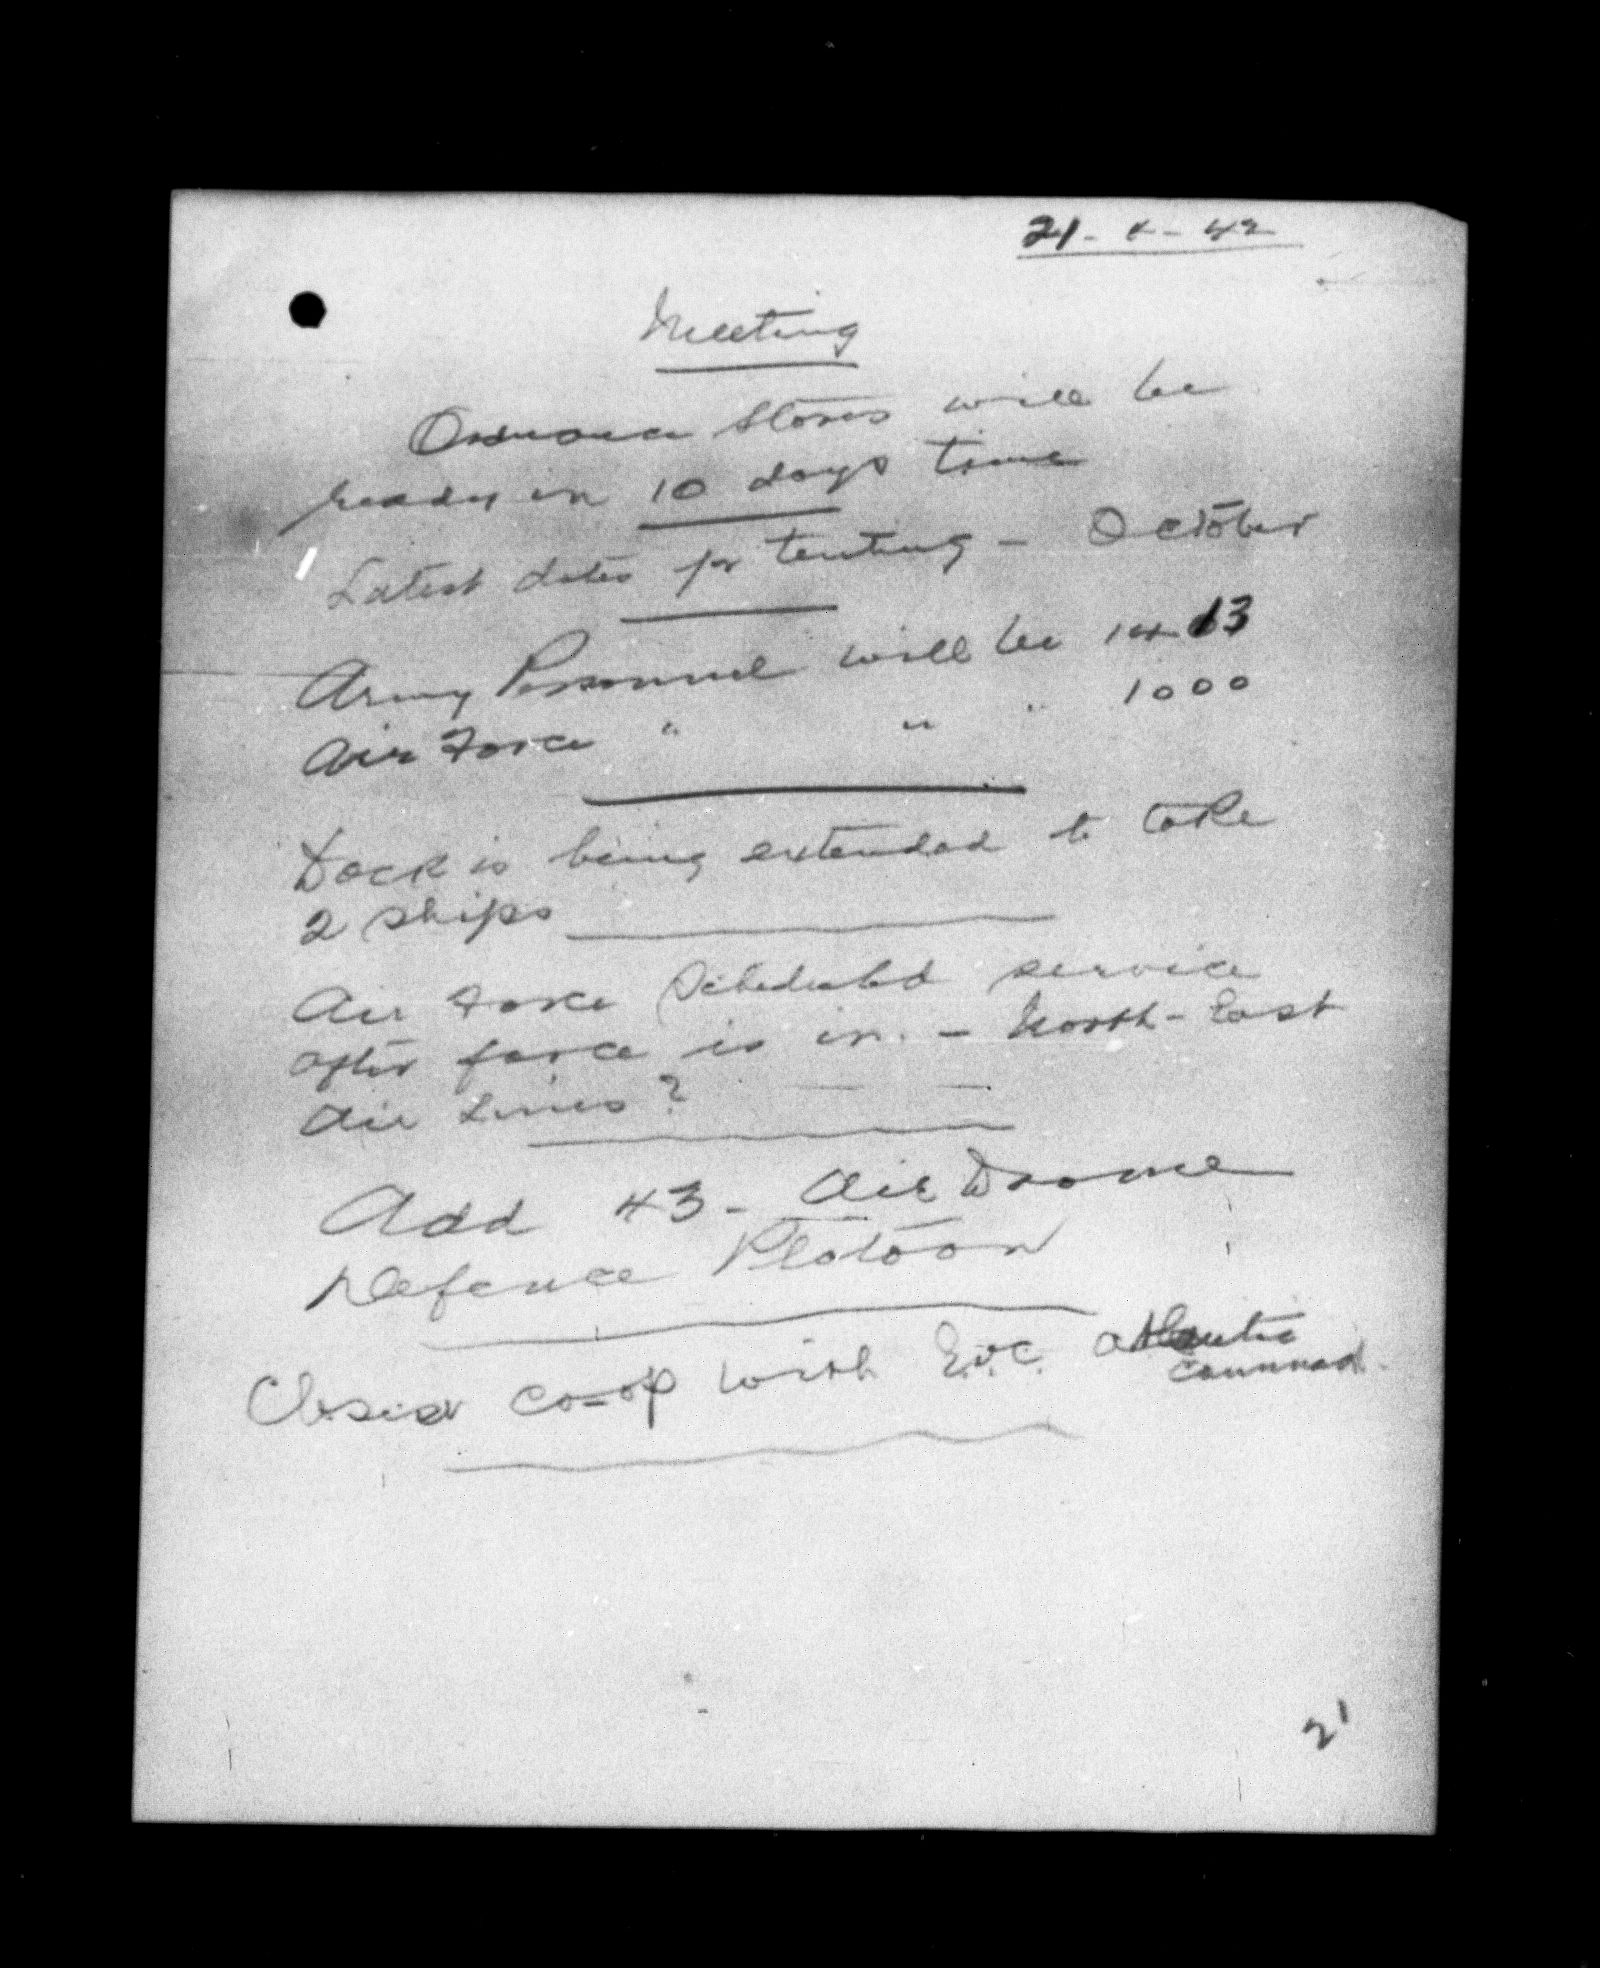 21 - X - 42
Meeting
Ordnance Stores will be
ready in 10 days time
Latest dates for tenting - October
Army Personnel will be 1413
Air Force " " " 1000
Dock is being extended to take
2 ships
Air Force Scheduled service
after force is in. - North-East
Air Lines?
Add 43 - AirDrome
Defence Platoon
Closer co-op with E.A.C. Atlantic
Command.
21